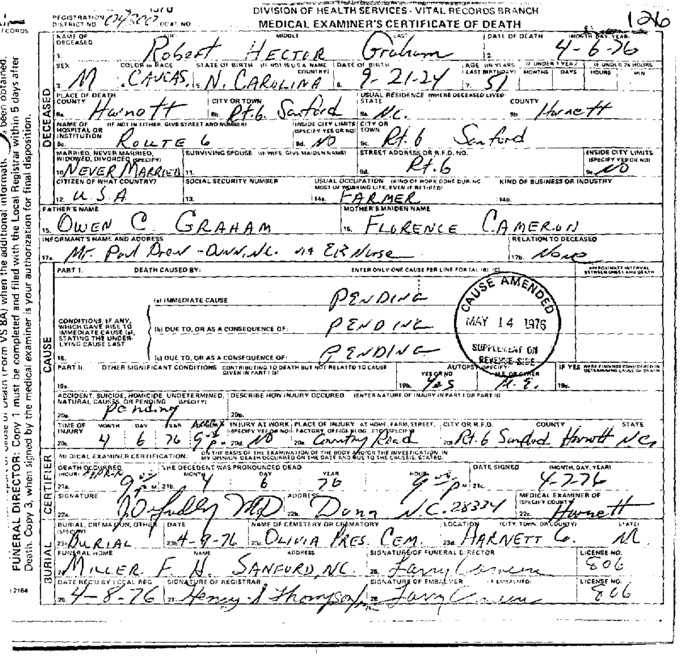 DIVISION OF HEALTH SERVICES - VITAL RECORDS BRANCH
REGISTRATION DISTRICT NO. LOCAL NO.
MEDICAL EXAMINER'S CERTIFICATE OF DEATH 1206
NAME OF DECEASED MIDDLE LAST DATE OF DEATH MONTH DAY YEAR
1. Robert HECTOR Graham 2. 4-6-76
SEX COLOR OR RACE STATE OF BIRTH (IF NOT IN U.S.A. NAME COUNTRY) DATE OF BIRTH AGE (IN YEARS LAST BIRTHDAY) IF UNDER 1 YEAR MONTHS DAYS IF UNDER 24 HOURS HOURS MIN
3. M CAUCAS. N. CAROLINA 9-21-24 7. 51
PLACE OF DEATH COUNTY CITY OR TOWN USUAL RESIDENCE (WHERE DECEASED LIVED) STATE COUNTY
Harnett Rt. 6 Sanford N.C. Harnett
NAME OF HOSPITAL OR INSTITUTION (IF NOT IN EITHER, GIVE STREET AND NUMBER) INSIDE CITY LIMITS (SPECIFY YES OR NO) CITY OR TOWN
ROUTE 6 NO Rt. 6 Sanford
MARRIED, NEVER MARRIED, WIDOWED, DIVORCED (SPECIFY) SURVIVING SPOUSE (IF WIFE, GIVE MAIDEN NAME) STREET ADDRESS OR R.F.D. NO. INSIDE CITY LIMITS (SPECIFY YES OR NO)
10. NEVER MARRIED 11. Rt. 6 NO
CITIZEN OF WHAT COUNTRY? SOCIAL SECURITY NUMBER USUAL OCCUPATION (KIND OF WORK DONE DURING MOST OF WORKING LIFE, EVEN IF RETIRED) KIND OF BUSINESS OR INDUSTRY
12. U.S.A 13. 14a. FARMER 14b.
FATHER'S NAME MOTHER'S MAIDEN NAME
15. OWEN C. GRAHAM 16. FLORENCE CAMERON
INFORMANT'S NAME AND ADDRESS RELATION TO DECEASED
17a. Mr. Paul Drew - Dunn, N.C. E.R. Nurse 17b. None
PART I. DEATH CAUSED BY: ENTER ONLY ONE CAUSE PER LINE FOR (a), (b), (c) APPROXIMATE INTERVAL BETWEEN ONSET AND DEATH
(a) IMMEDIATE CAUSE PENDING
CONDITIONS, IF ANY, WHICH GAVE RISE TO IMMEDIATE CAUSE (a), STATING THE UNDERLYING CAUSE LAST
(b) DUE TO, OR AS A CONSEQUENCE OF: PENDING
18. (c) DUE TO, OR AS A CONSEQUENCE OF: PENDING
CAUSE AMENDED
MAY 14 1976
SUPPLEMENT ON REVERSE SIDE
PART II. OTHER SIGNIFICANT CONDITIONS CONTRIBUTING TO DEATH BUT NOT RELATED TO CAUSE GIVEN IN PART I (a) AUTOPSY YES OR NO
19a. 19b. Yes M.E.
ACCIDENT, SUICIDE, HOMICIDE, UNDETERMINED, NATURAL CAUSES, OR PENDING (SPECIFY) DESCRIBE HOW INJURY OCCURRED (ENTER NATURE OF INJURY IN PART I OR PART II)
20a. Pending 20b.
TIME OF INJURY MONTH DAY YEAR INJURY AT WORK (SPECIFY YES OR NO) PLACE OF INJURY AT HOME, FARM, STREET, FACTORY, OFFICE BLDG. ETC. (SPECIFY) CITY OR R.F.D. COUNTY STATE
4 6 76 NO Country Road Rt. 6 Sanford Harnett N.C.
MEDICAL EXAMINER CERTIFICATION: ON THE BASIS OF THE EXAMINATION OF THE BODY AND/OR THE INVESTIGATION, IN MY OPINION DEATH OCCURRED ON THE DATE AND DUE TO THE CAUSE(S) STATED.
DEATH OCCURRED (HOUR) THE DECEDENT WAS PRONOUNCED DEAD MONTH DAY YEAR HOUR DATE SIGNED (MONTH, DAY, YEAR)
21a. 21b. 4 6 76 9 PM 4-7-76
SIGNATURE ADDRESS MEDICAL EXAMINER OF (SPECIFY COUNTY)
22a. MD 22b. Dunn N.C. 28334 22c. Harnett
BURIAL, CREMATION, OTHER (SPECIFY) DATE NAME OF CEMETERY OR CREMATORY LOCATION (CITY, TOWN, OR COUNTY) STATE
BURIAL 23b. 4-9-76 23c. OLIVIA PRES. CEM. 23d. HARNETT Co.
FUNERAL HOME NAME ADDRESS SIGNATURE OF FUNERAL DIRECTOR LICENSE NO.
MILLER F. H. SANFORD, NC. 806
DATE REC'D BY LOCAL REG. SIGNATURE OF REGISTRAR SIGNATURE OF EMBALMER (IF EMBALMED) LICENSE NO.
26. 4-8-76 27. Henry S Thompson 806
DECEASED
CAUSE
CERTIFIER
BURIAL
FUNERAL DIRECTOR: Copy 1 must be completed and filed with the Local Registrar within 5 days after
Death. Copy 3, when signed by the medical examiner is your authorization for final disposition.